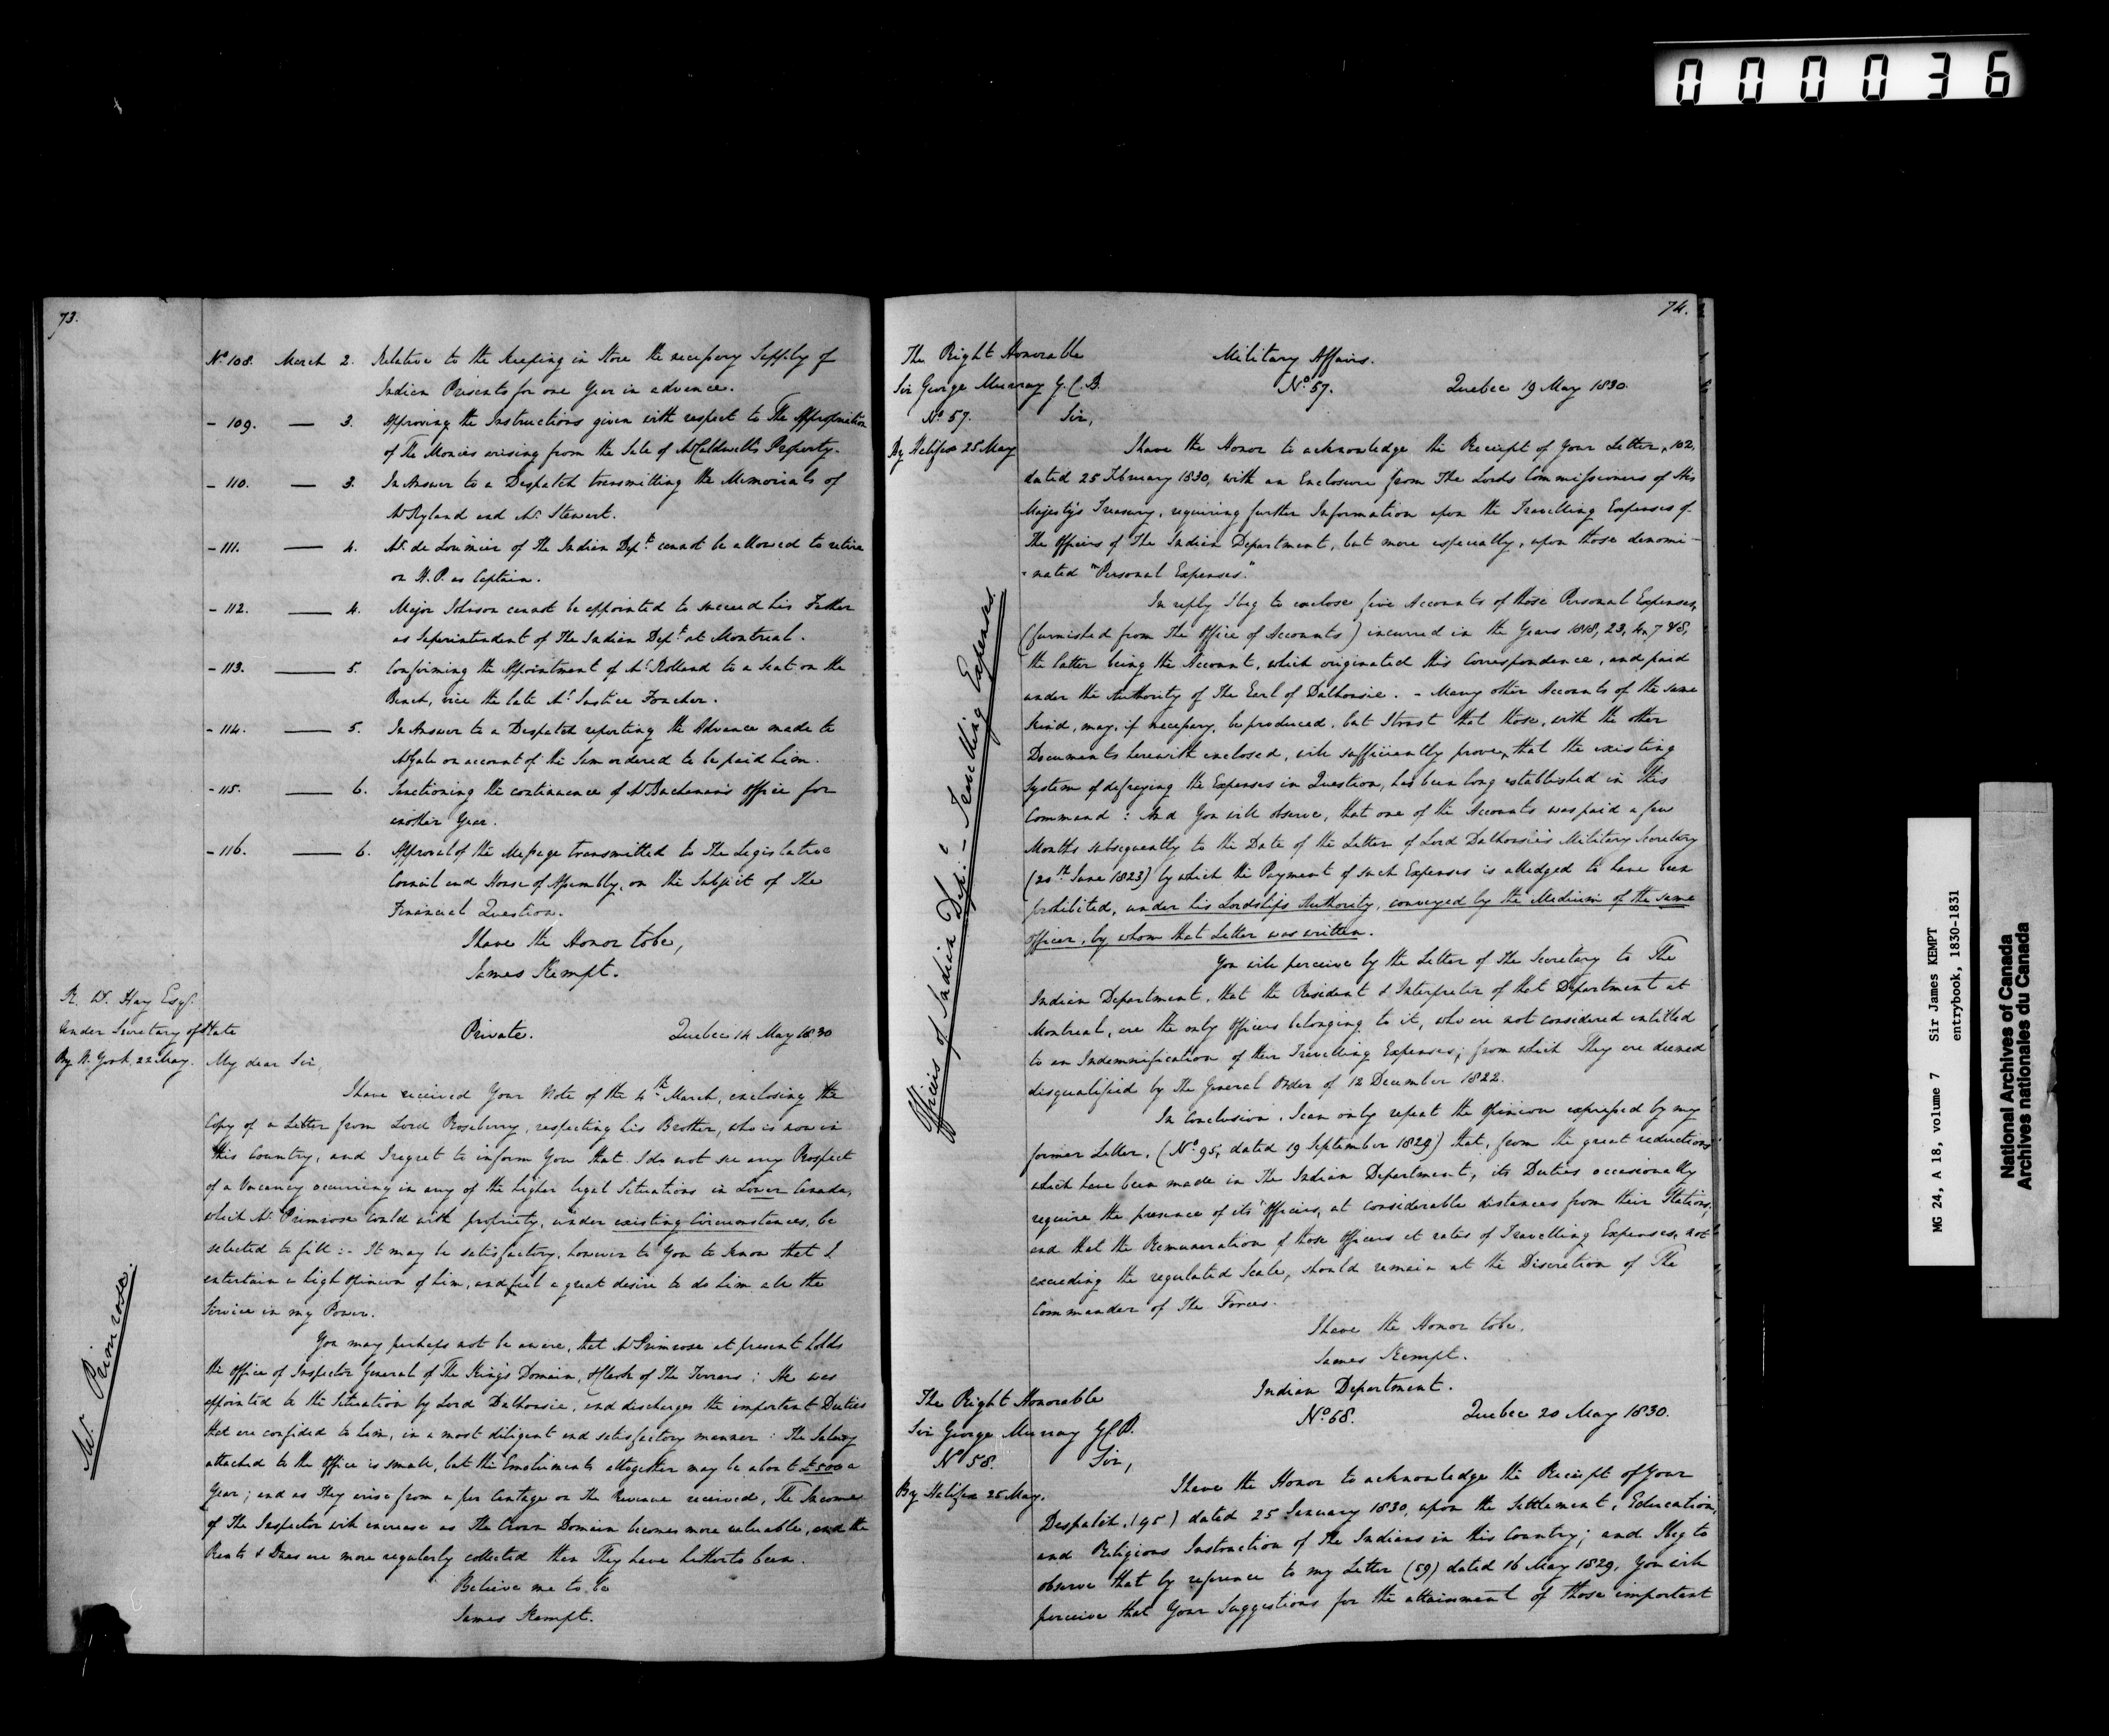 000036
73.
No. 108. March 2. Relative to the keeping in Store the necessary Supply of
Indian Presents for one Year in advance.
- 109. — 3. Approving the Instructions given with respect to The Appropriation
of The Monies arising from the Sale of Mr Caldwell's Property.
- 110. — 3. In Answer to a Despatch transmitting the Memorials of
Mr Ryland and Mr. Stewart.
- 111. — 4. Mr. de Lorimier of The Indian Dept. cannot be allowed to retire
on H. P. as Captain.
- 112. — 4. Major Johnson cannot be appointed to succeed his Father
as Superintendent of The Indian Dept. at Montreal.
- 113. — 5. Confirming the Appointment of Mr. Rolland to a Seat on the
Bench, vice the late Mr. Justice Foucher.
- 114. — 5. In Answer to a Despatch reporting the Advance made to
Mr Gale on account of the Sum ordered to be paid him.
- 115. — 6. Sanctioning the continuance of Mr Buchanan's Office for
another Year.
- 116. — 6. Approval of the Message transmitted to The Legislative
Council and House of Assembly, on the Subject of The
Financial Question.
I have the Honor to be,
James Kempt.
R. W. Hay Esqr.
Under Secretary of State
By N. York, 22 May.
Private. Quebec 14 May 1830
My dear Sir,
I have received Your Note of the 4th March, enclosing the
Copy of a Letter from Lord Roseberry, respecting his Brother, who is now in
this Country, and I regret to inform You that I do not see any Prospect
of a Vacancy occurring in any of the higher legal Situations in Lower Canada,
which Mr. Primrose could with propriety, under existing Circumstances, be
selected to fill :- It may be satisfactory, however to You to know that I
entertain a high opinion of him, and feel a great desire to do him all the
Service in my Power.
Mr. Primrose.
You may perhaps not be aware, that Mr Primrose at present holds
the Office of Inspector General of The King's Domain, & Clerk of The Terrars ; He was
appointed to the Situation by Lord Dalhousie, and discharges the important Duties
that are confided to him, in a most diligent and satisfactory manner : The Salary
attached to the Office is small, but the Emoluments altogether may be about £500 a
Year ; and as They arise from a per Centage on The Revenue received, The Income
of The Inspector will increase as The Crown Domain becomes more valuable, and the
Rents & Dues are more regularly collected than They have hitherto been.
Believe me to be
James Kempt.
74.
The Right Honorable
Sir George Murray G.C.B.
No. 57.
By Halifax 25 May
Military Affairs.
No. 57. Quebec 19 May 1830.
Sir,
I have the Honor to acknowledge the Receipt of Your Letter, 102,
dated 25 February 1830, with an Enclosure from The Lords Commissioners of His
Majesty's Treasury, requiring further Information upon the Travelling Expenses of
The Officers of The Indian Department, but more especially, upon those denomi-
-nated "Personal Expenses."
Officers of Indian Depe. - Travelling Expenses.
In reply I beg to enclose five Accounts of those Personal Expenses,
(furnished from The Office of Accounts) incurred in the Years 1818, 23, 4, 7 & 8,
the latter being the Account, which originated this Correspondence, and paid
under the Authority of The Earl of Dalhousie. - Many other Accounts of the same
kind, may, if necessary, be produced, but I trust that those, with the other
Documents herewith enclosed, will sufficiently prove, that the existing
System of defraying the Expenses in Question, has been long established in this
Command : And You will observe, that one of the Accounts was paid a few
Months subsequently to the Date of the Letter of Lord Dalhousie's Military Secretary
(20th June 1823) by which the Payment of such Expenses is alledged to have been
prohibited, under his Lordship's Authority, conveyed by the Medium of the same
Officer, by whom that Letter was written.
You will perceive by the Letter of The Secretary to The
Indian Department, that the Resident & Interpreter of that Department at
Montreal, are the only Officers belonging to it, who are not considered entitled
to an Indemnification of their Travelling Expenses ; from which They are deemed
disqualified by The General Order of 12 December 1822.
In Conclusion, I can only repeat the Opinion expressed by my
former Letter, (No. 95, dated 19 September 1829) that, from the great reductions
which have been made in The Indian Department, its Duties occasionally
require the presence of its Officers, at considerable distances from their Stations,
and that the Remuneration of those Officers at rates of Travelling Expenses, not
exceeding the regulated Scale, should remain at the Discretion of The
Commander of The Forces.
I have the Honor to be.
James Kempt.
The Right Honorable
Sir George Murray GCB.
No 58.
By Halifax 25 May.
Indian Department.
No. 58. Quebec 20 May 1830.
Sir,
I have the Honor to acknowledge the Receipt of Your
Despatch, (95) dated 25 January 1830, upon the Settlement, Education,
and Religious Instruction of The Indians in this Country ; and I beg to
observe that by reference to my Letter (59) dated 16 May 1829, You will
perceive that Your Suggestions for the attainment of those important
MG 24, A 18, volume 7 Sir James KEMPT
entrybook, 1830-1831
National Archives of Canada
Archives nationales du Canada